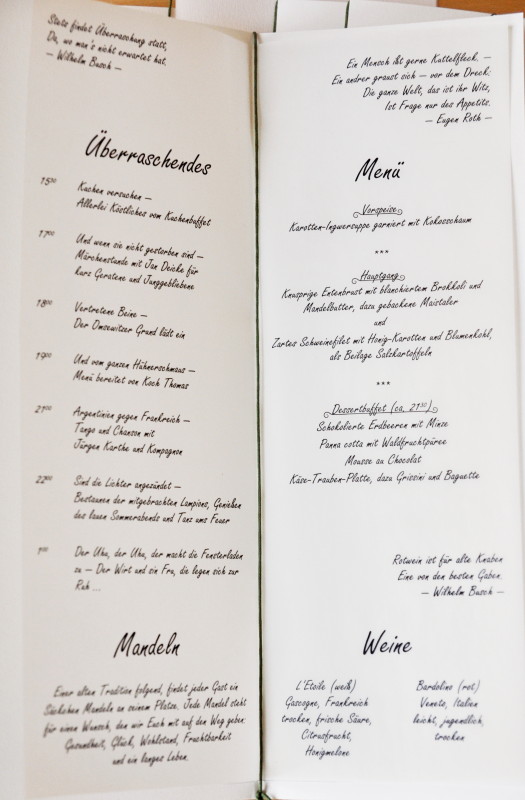 Stets findet Überraschung statt,
Da, wo man's nicht erwartet hat.
– Wilhelm Busch –
Überraschendes
15⁰⁰ Kuchen versuchen –
Allerlei Köstliches vom Kuchenbuffet
17⁰⁰ Und wenn sie nicht gestorben sind –
Märchenstunde mit Jan Deicke für
kurz Geratene und Junggebliebene
18⁰⁰ Vertretene Beine –
Der Omsewitzer Grund lädt ein
19⁰⁰ Und vom ganzen Hühnerschmaus –
Menü bereitet von Koch Thomas
21⁰⁰ Argentinien gegen Frankreich –
Tango und Chanson mit
Jürgen Karthe und Kompagnon
22⁰⁰ Sind die Lichter angezündet –
Bestaunen der mitgebrachten Lampions, Genießen
des lauen Sommerabends und Tanz ums Feuer
1⁰⁰ Der Uhu, der Uhu, der macht die Fensterladen
zu – Der Wirt und sin Fru, die legen sich zur
Ruh ...
Mandeln
Einer alten Tradition folgend, findet jeder Gast ein
Säckchen Mandeln an seinem Platze. Jede Mandel steht
für einen Wunsch, den wir Euch mit auf den Weg geben:
Gesundheit, Glück, Wohlstand, Fruchtbarkeit
und ein langes Leben.
Ein Mensch ißt gerne Kuttelfleck. –
Ein andrer graust sich – vor dem Dreck:
Die ganze Welt, das ist ihr Witz,
Ist Frage nur des Appetits.
– Eugen Roth –
Menü
Vorspeise
Karotten-Ingwersuppe garniert mit Kokosschaum
***
Hauptgang
Knusprige Entenbrust mit blanchiertem Brokkoli und
Mandelbutter, dazu gebackene Maistaler
und
Zartes Schweinefilet mit Honig-Karotten und Blumenkohl,
als Beilage Salzkartoffeln
***
Dessertbuffet (ca. 21³⁰)
Schokolierte Erdbeeren mit Minze
Panna cotta mit Waldfruchtpüree
Mousse au Chocolat
Käse-Trauben-Platte, dazu Grissini und Baguette
Rotwein ist für alte Knaben
Eine von den besten Gaben.
– Wilhelm Busch –
Weine
L'Etoile (weiß)
Gascogne, Frankreich
trocken, frische Säure,
Citrusfrucht,
Honigmelone
Bardolino (rot)
Veneto, Italien
leicht, jugendlich,
trocken